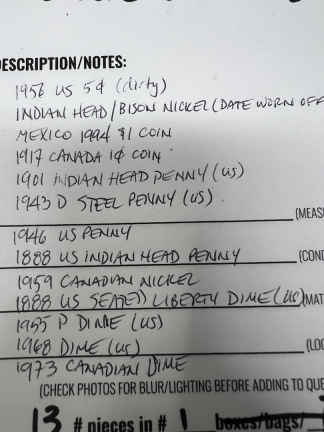 DESCRIPTION/NOTES:
1956 US 5¢ (dirty)
INDIAN HEAD/BISON NICKEL (DATE WORN OFF
MEXICO 1994 $1 COIN
1917 CANADA 1¢ COIN
1901 INDIAN HEAD PENNY (US)
1943 D STEEL PENNY (US)
(MEAS
1946 US PENNY
1888 US INDIAN HEAD PENNY (COND
1959 CANADIAN NICKEL
1888 US SEATED LIBERTY DIME (US) MAT
1955 P DIME (US)
1968 DIME (US) (LOC
1973 CANADIAN DIME
(CHECK PHOTOS FOR BLUR/LIGHTING BEFORE ADDING TO QUE
13 # pieces in # 1 boxes/bags/